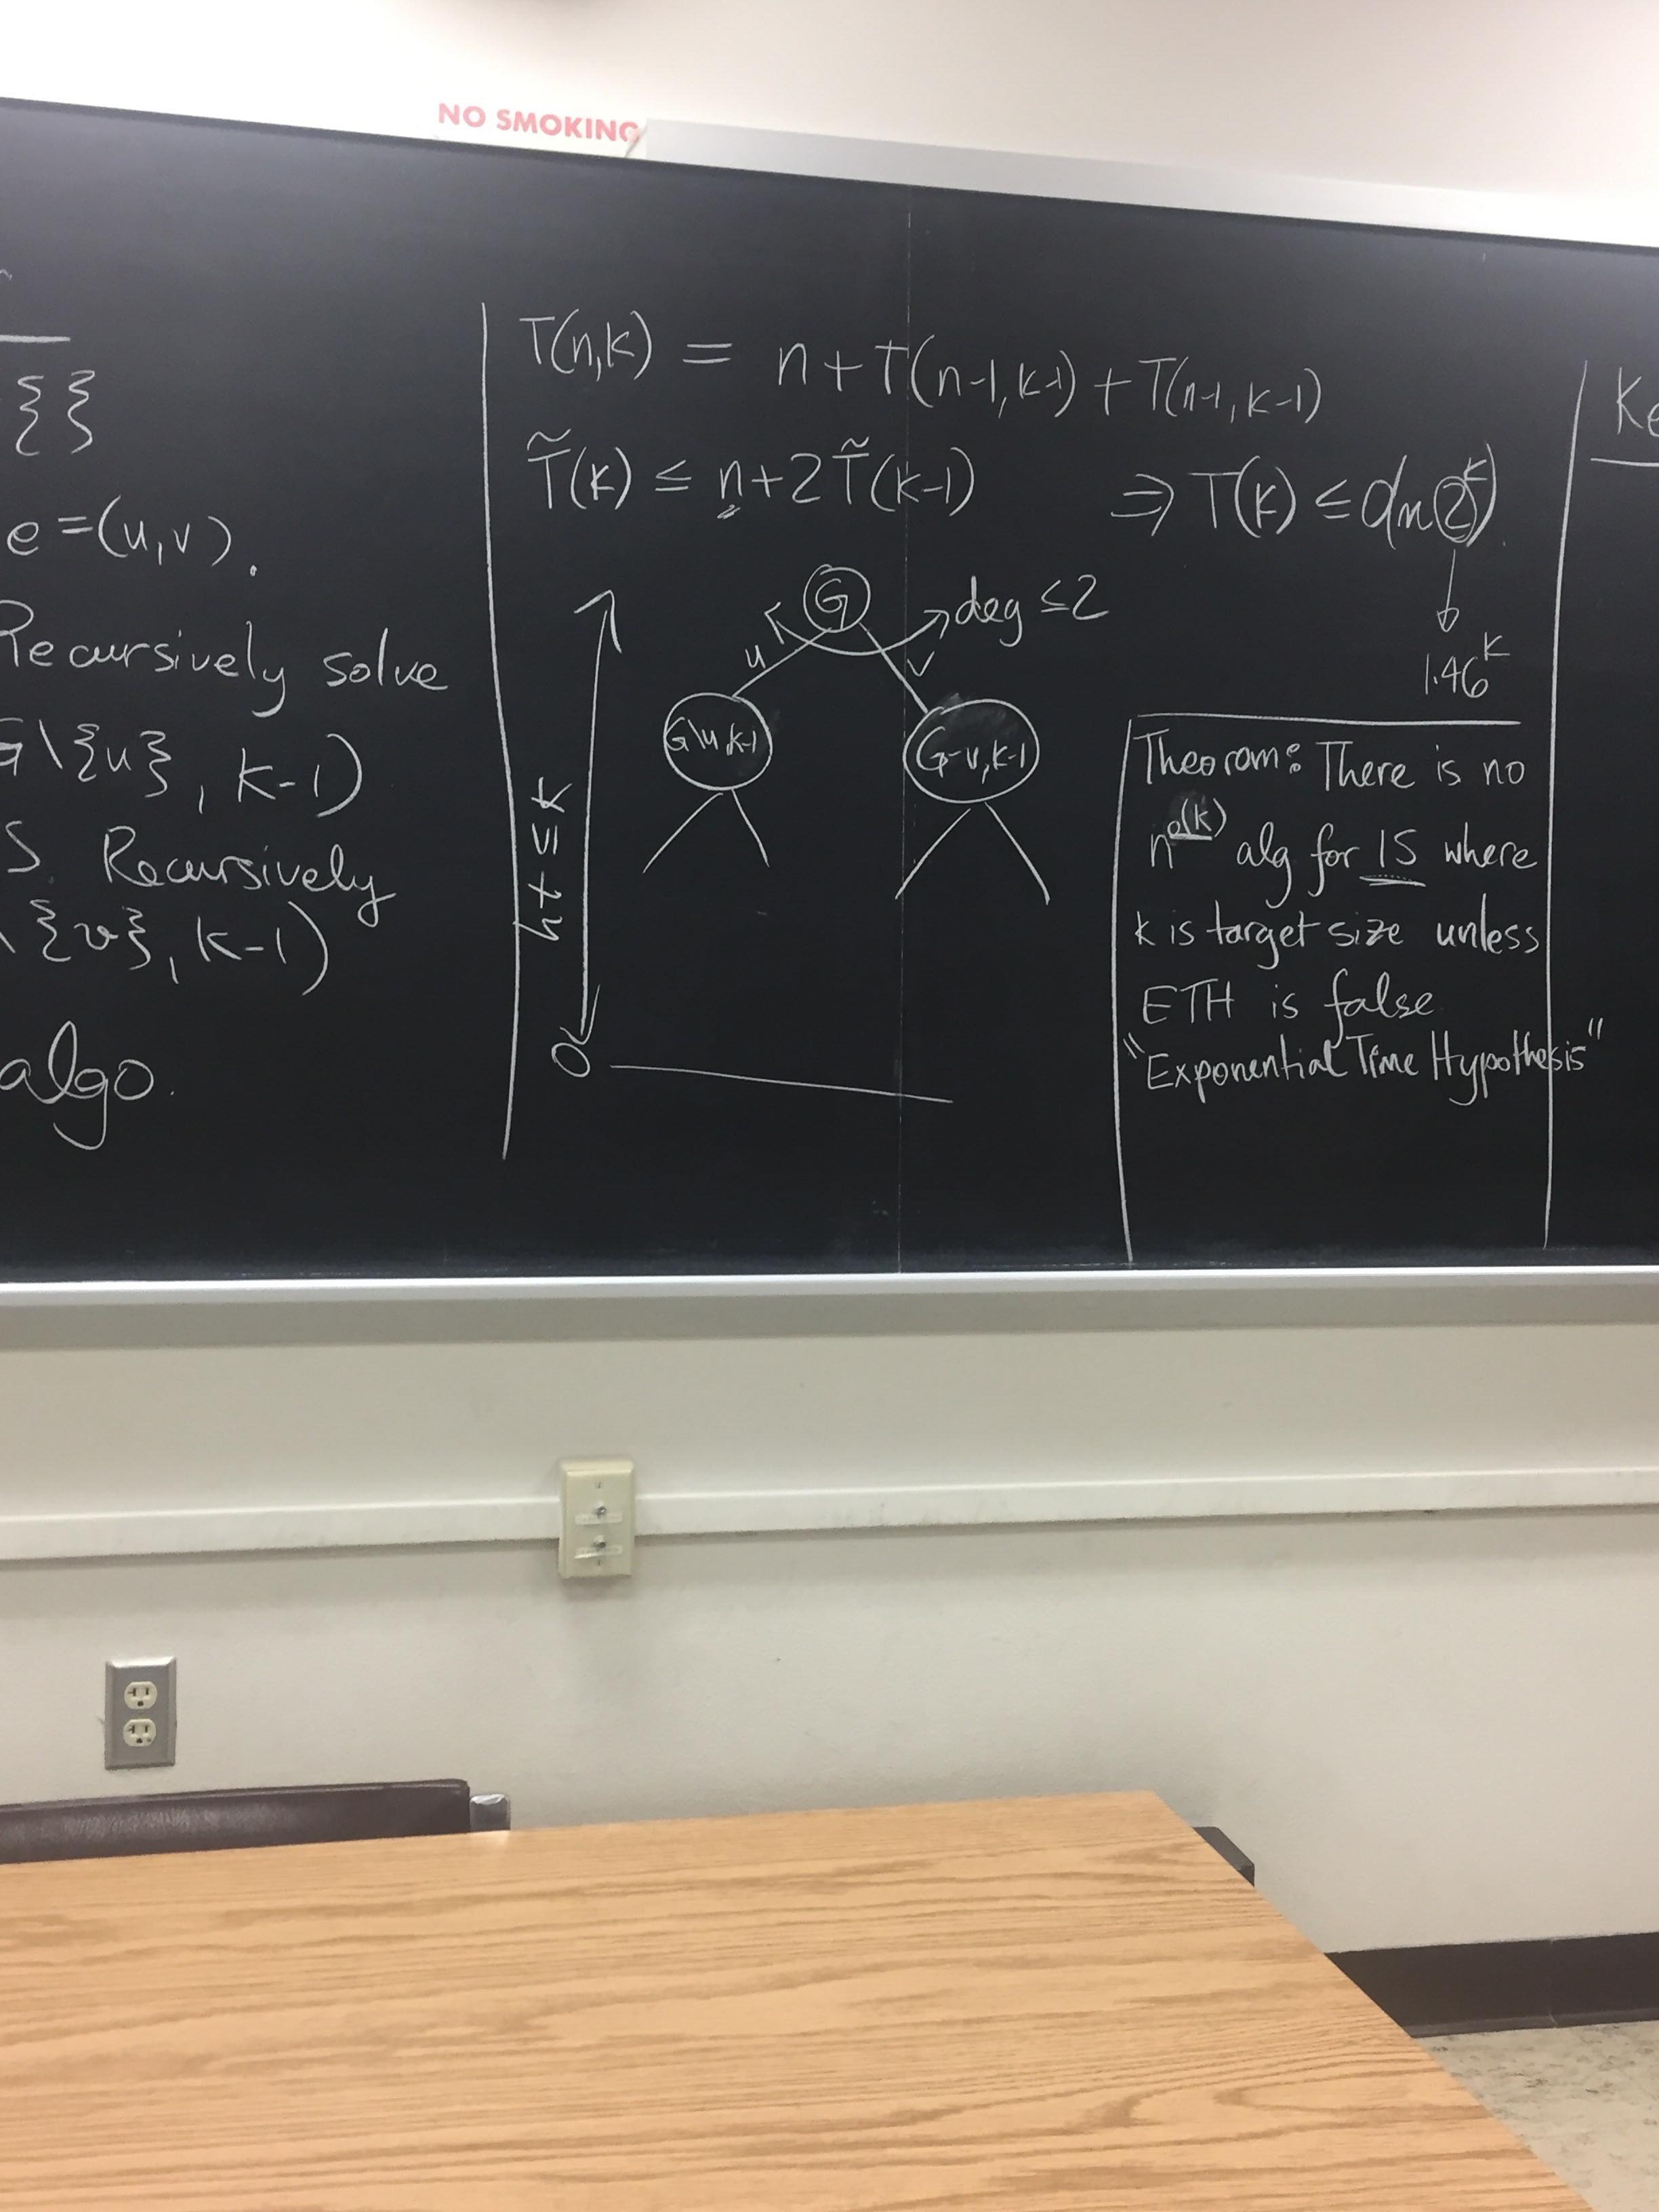 NO SMOKING
{}
e=(u,v).
Recursively solve
G\{u}, k-1)
S. Recursively
\{v}, k-1)
algo.
T(n,k) = n+T(n-1,k-1)+T(n-1,k-1)
T̃(k) ≤ n+2T̃(k-1) ⇒ T(k) ≤ O(n2^k).
1.46^k
G
deg ≤2
u
v
G\u,k-1
G-v,k-1
ht ≤ k
0
Theorom: There is no
n^o(k) alg for IS where
k is target size unless
ETH is false
"Exponential Time Hypothesis"
Ke